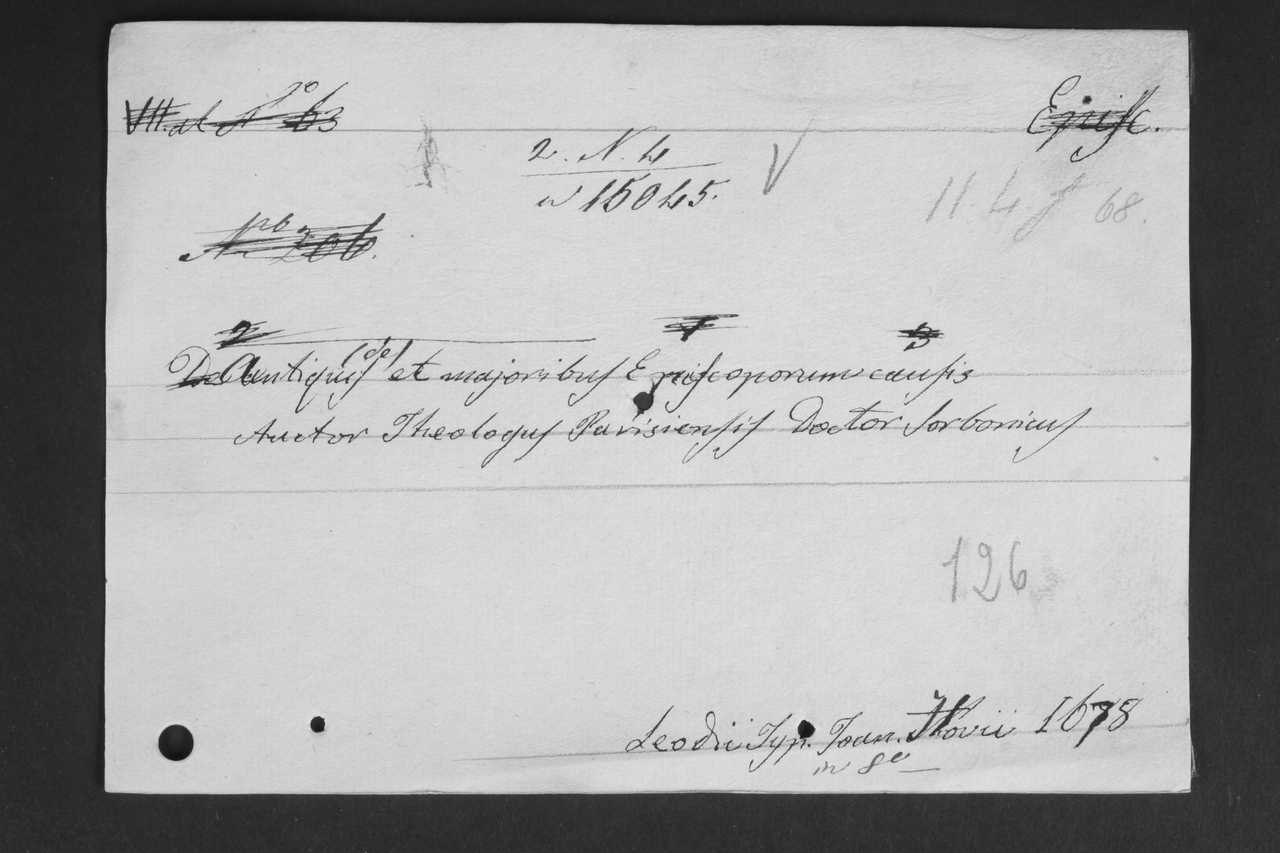 VII. al No 63
Episc.
2. N. 4
15045.
11. 4. f 68.
No 206.
2 1 3
De Antiquis (de) et majoribus Episcoporum causis
Auctor Theologus Parisiensis Doctor Sorbonicus
126
Leodii Typ. Joan. Hovii 1678
in 8o